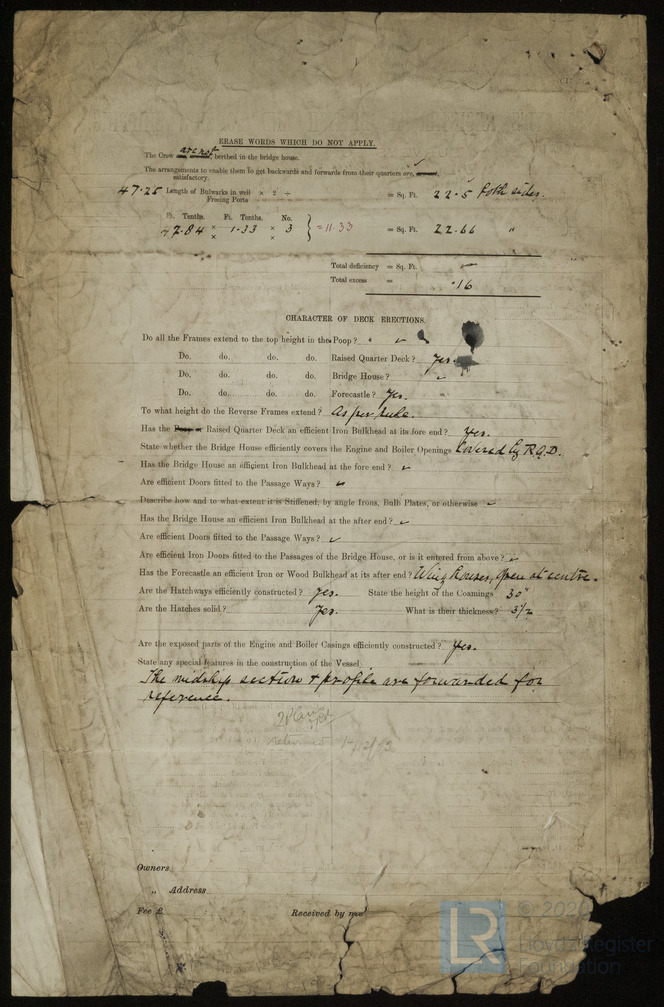 ERASE WORDS WHICH DO NOT APPLY.
The Crew are not berthed in the bridge house.
The arrangements to enable them to get backwards and forwards from their quarters are,
satisfactory.
47.25 Length of Bulwarks in well × 2 ÷ = Sq. Ft. 22.5 both sides.
Freeing Ports
Ft. Tenths. Ft. Tenths. No.
2.84 × 1.33 × 3 } = 11.33 = Sq. Ft. 22.66 "
× ×
Total deficiency = Sq. Ft.
Total excess = .16
CHARACTER OF DECK ERECTIONS.
Do all the Frames extend to the top height in the Poop?
Do. do. do. do. Raised Quarter Deck? Yes
Do. do. do. do. Bridge House?
Do. do. do. do. Forecastle? Yes.
To what height do the Reverse Frames extend? As per rule.
Has the Poop or Raised Quarter Deck an efficient Iron Bulkhead at its fore end? Yes.
State whether the Bridge House efficiently covers the Engine and Boiler Openings Covered by R.Q.D.
Has the Bridge House an efficient Iron Bulkhead at the fore end? ✓
Are efficient Doors fitted to the Passage Ways? ✓
Describe how and to what extent it is Stiffened, by angle Irons, Bulb Plates, or otherwise ✓
Has the Bridge House an efficient Iron Bulkhead at the after end? ✓
Are efficient Doors fitted to the Passage Ways? ✓
Are efficient Iron Doors fitted to the Passages of the Bridge House, or is it entered from above? ✓
Has the Forecastle an efficient Iron or Wood Bulkhead at its after end? Wing Houses, Open at centre.
Are the Hatchways efficiently constructed? Yes. State the height of the Coamings 30"
Are the Hatches solid? Yes. What is their thickness? 3½
Are the exposed parts of the Engine and Boiler Casings efficiently constructed? Yes.
State any special features in the construction of the Vessel
The midship section & profile are forwarded for
reference.
returned
Owners
„ Address
Fee £ Received by me
LR © 2020
Lloyd's Register
Foundation